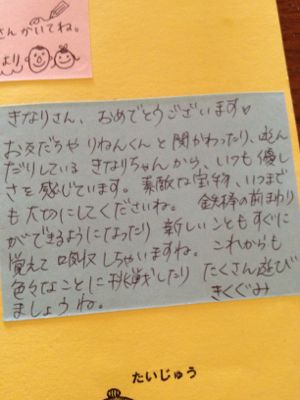 さんかいてね。
より
きなりさん、おめでとうございます♡
お友だちや りねんくんと関わったり、遊ん
だりしている きなりちゃんから、いつも優し
さを感じています。素敵な宝物、いつまで
も大切にしてくださいね。 鉄棒の前まわり
ができるようになったり 新しいこともすぐに
覚えて吸収しちゃいますね。 これからも
色々なことに挑戦したり たくさん遊び
ましょうね。 きくぐみ
たいじゅう